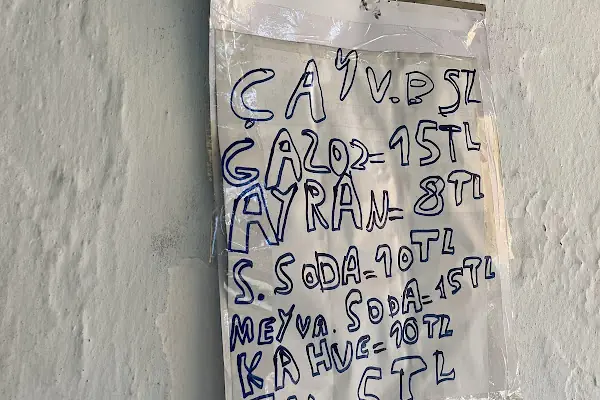 ÇAY V.B 5TL
GAZOZ=15TL
AYRAN=8TL
S.SODA=10TL
MEYVA.SODA=15TL
KAHVE=10TL
5TL